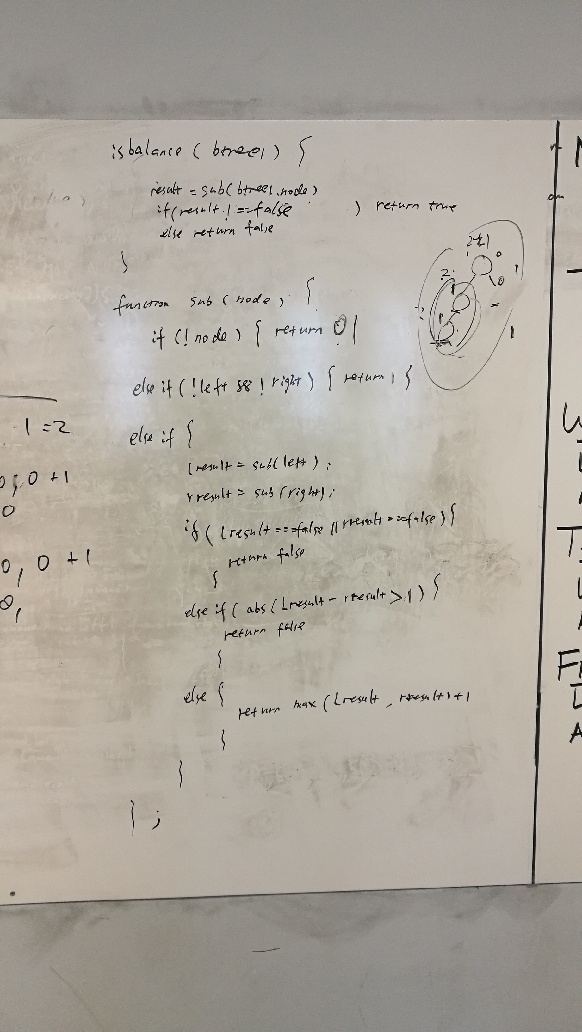 isbalance ( btree1 ) {
result = sub( btree1.node)
if(result ! ==false ) return true
else return false
}
function sub ( node ) {
if ( ! node ) { return 0 }
else if ( ! left && ! right ) { return 1 }
else if {
lresult = sub( left ) ;
rresult = sub ( right ) ;
if ( Lresult ===false || rresult ==false ) {
return false
}
else if ( abs ( Lresult - rresult > 1 ) ) {
return false
}
else {
return max ( Lresult , rresult ) + 1
}
}
} ;
1 = 2
0 , 0 + 1
0
0 , 0 + 1
0 ,